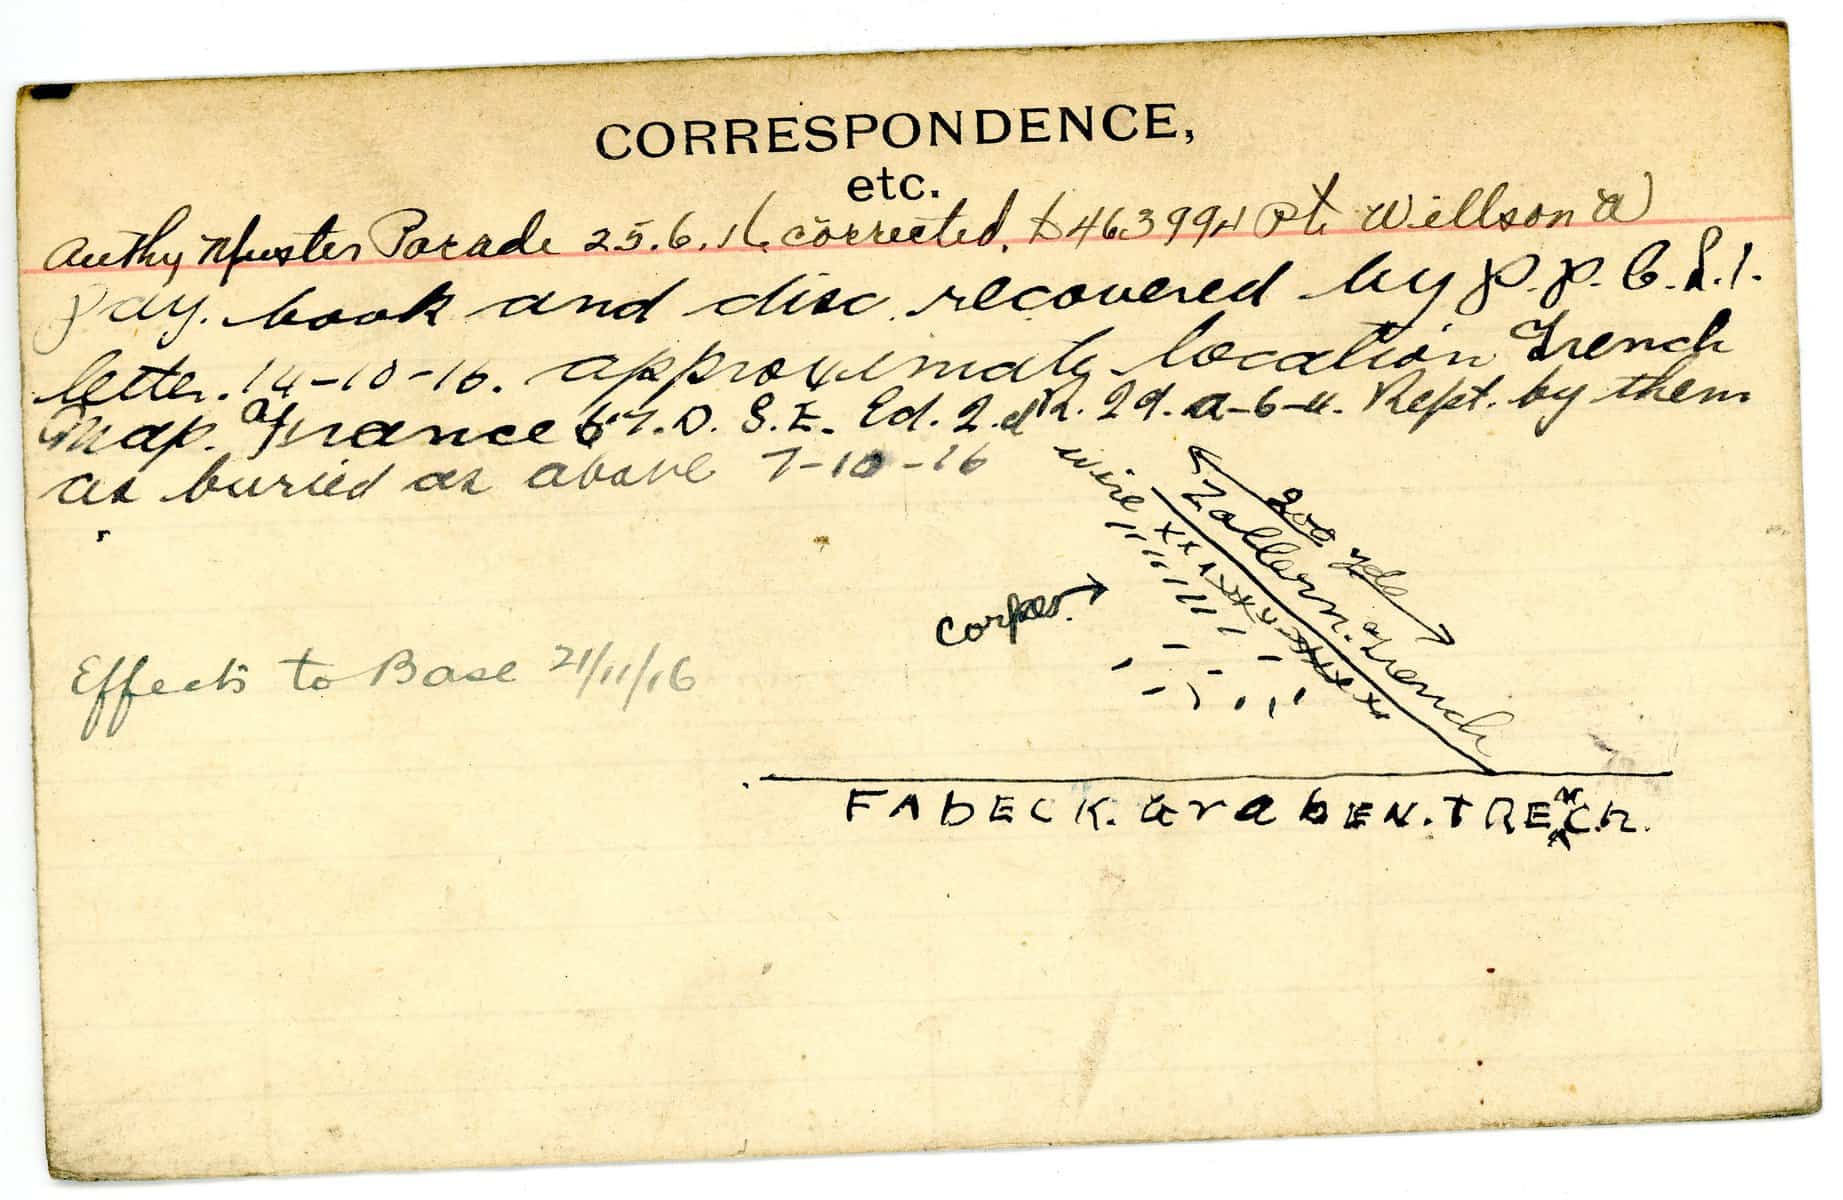 CORRESPONDENCE,
etc.
Authy Muster Parade 25.6.16 corrected. to 463994 Pte Willson W
Pay. book and disc. recovered by P.P.C.L.I.
letter. 14-10-16. approximate location Trench
Map. France 57.D. S.E. Ed. 2.d R. 29. a-6-4. Rept. by them
as buried as above 7-10-16
wire
200 yds
Zollern. Trench
corpses.
Effects to Base 21/11/16
FABECK. GraBEN. TRENCh.